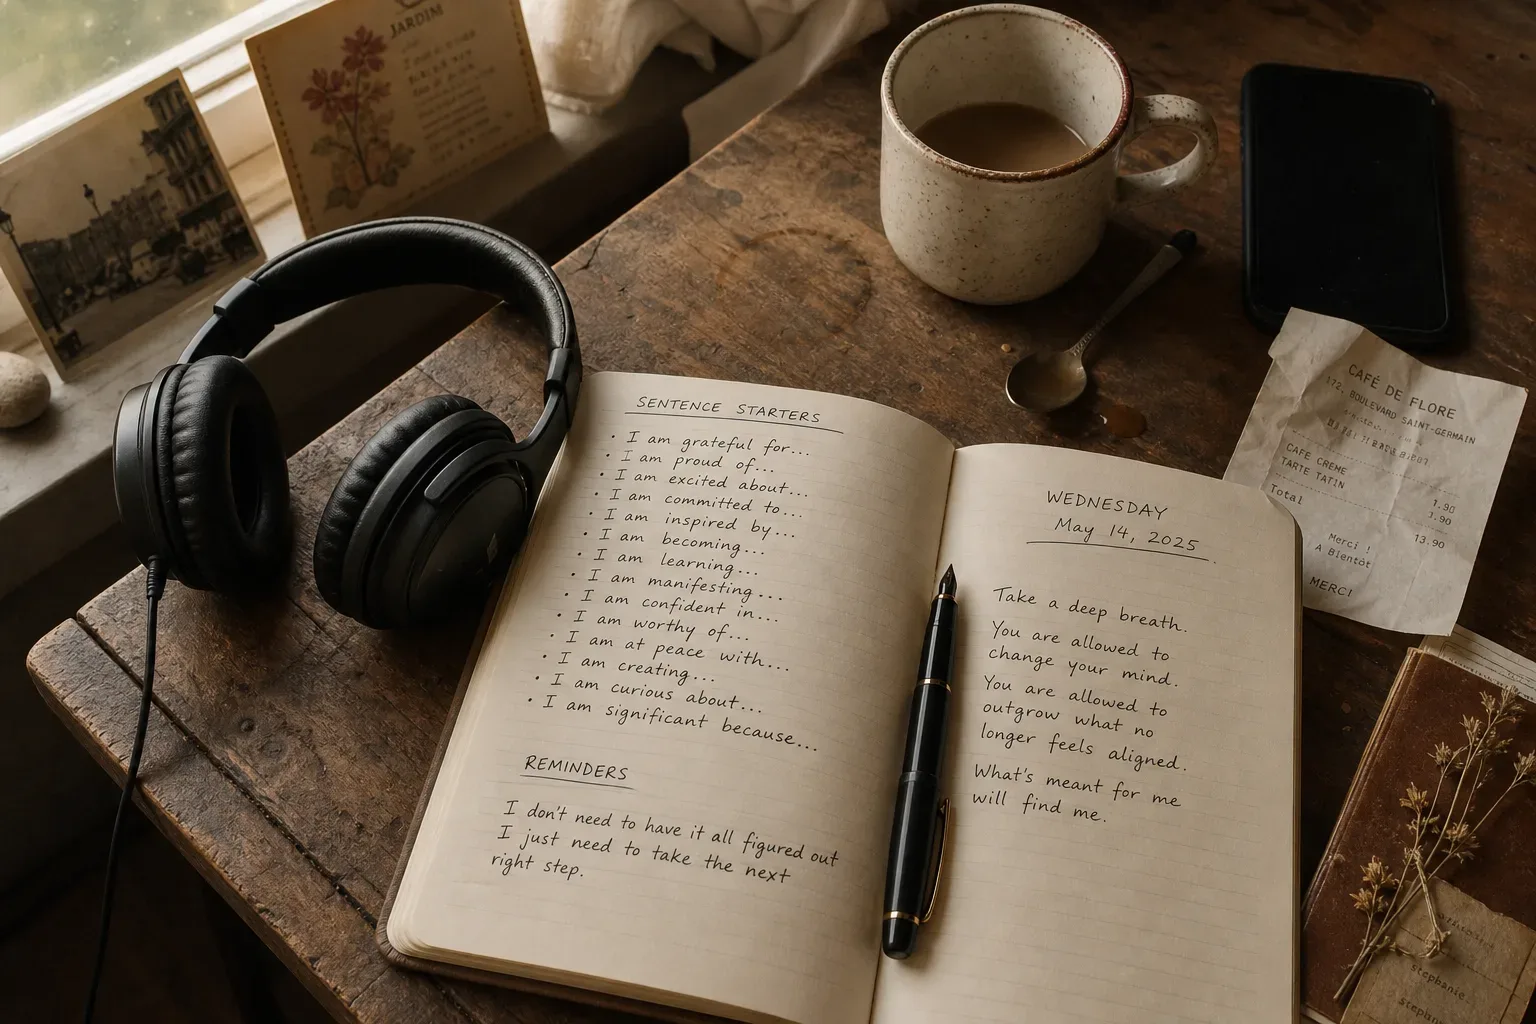 JARDIM
SENTENCE STARTERS
• I am grateful for...
• I am proud of...
• I am excited about...
• I am committed to...
• I am inspired by...
• I am becoming...
• I am learning...
• I am manifesting...
• I am confident in...
• I am worthy of...
• I am at peace with...
• I am creating...
• I am curious about...
• I am significant because...
REMINDERS
I don't need to have it all figured out
I just need to take the next
right step.
WEDNESDAY
May 14, 2025
Take a deep breath.
You are allowed to
change your mind.
You are allowed to
outgrow what no
longer feels aligned.
What's meant for me
will find me.
CAFÉ DE FLORE
172, BOULEVARD SAINT-GERMAIN
CAFE CREME 1.90
TARTE TATIN 1.90
Total 13.90
Merci !
A Bientôt
MERCI
stephanie